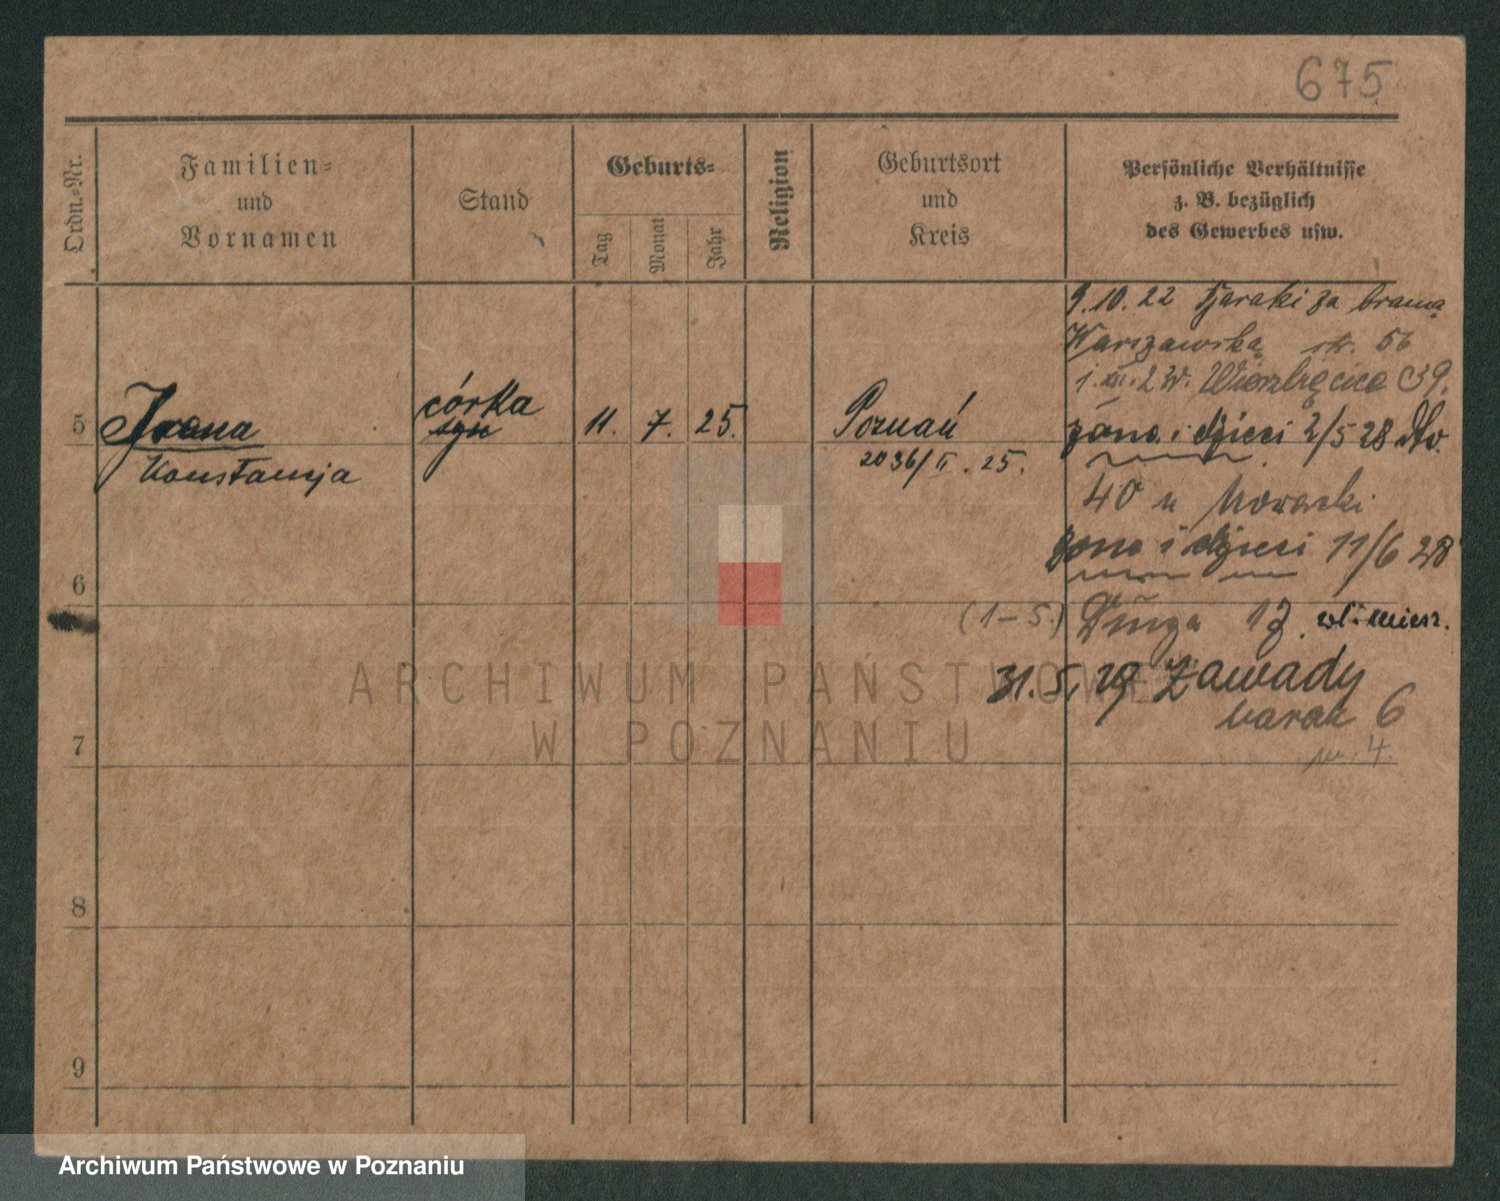 675
Ordn.-Nr.
Familien-
und
Vornamen
Stand
Geburts-
Tag
Monat
Jahr
Religion
Geburtsort
und
Kreis
Persönliche Verhältnisse
z. B. bezüglich
des Gewerbes usw.
9.10.22 Baraki za bramą
Warszawską 56
Wierzbięcice 39.
5 Irena córka 11. 7. 25. Poznań
żona i dzieci 2/5 28
Konstancja syn 2036/II. 25.
40 u Nowacki
żona i dzieci 11/6 28
6
(1-5.) Długa
31.5.29 Zawady
barak 6
7
m. 4.
8
9
ARCHIWUM PAŃSTWOWE
W POZNANIU
Archiwum Państwowe w Poznaniu